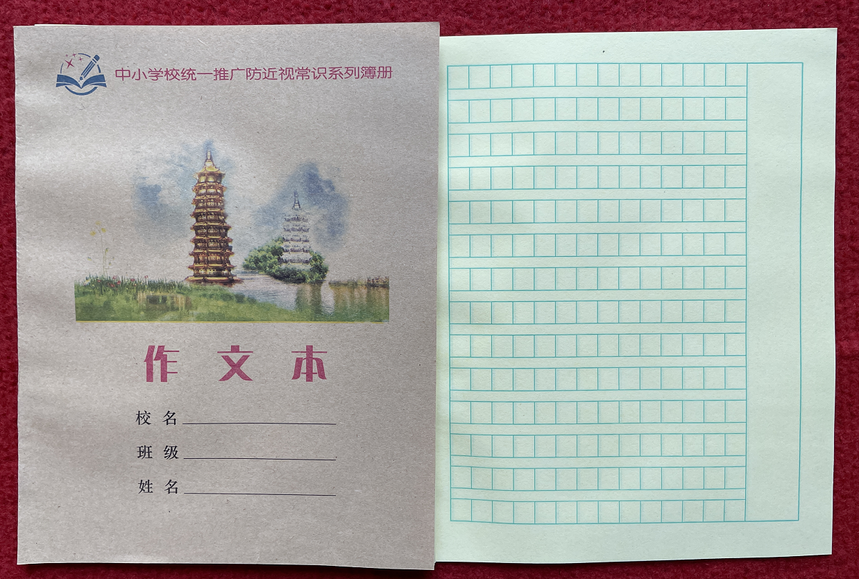 中小学校统一推广防近视常识系列簿册
作文本
校名
班级
姓名